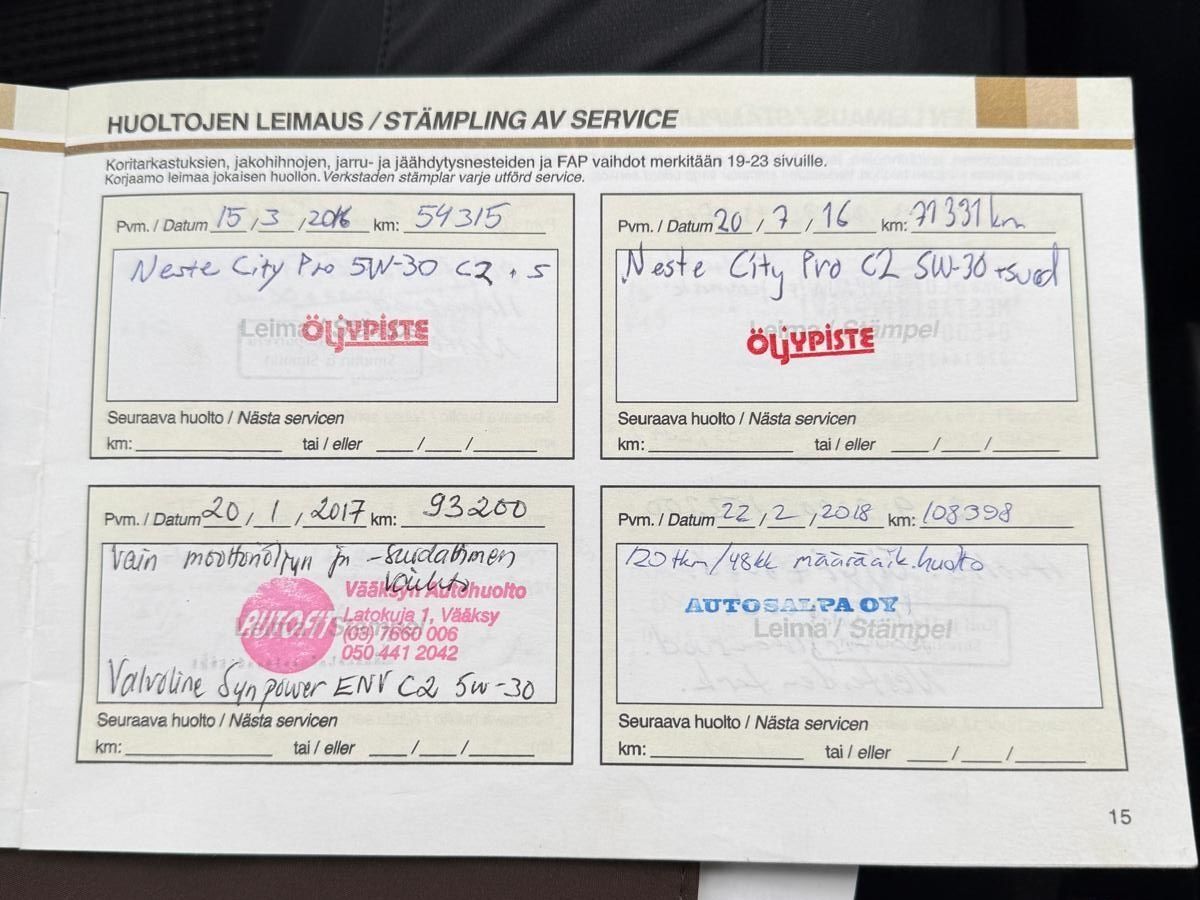 HUOLTOJEN LEIMAUS / STÄMPLING AV SERVICE
Koritarkastuksien, jakohihnojen, jarru- ja jäähdytysnesteiden ja FAP vaihdot merkitään 19-23 sivuille.
Korjaamo leimaa jokaisen huollon. Verkstaden stämplar varje utförd service.
Pvm. / Datum 15 / 3 / 2016 km: 54315
Neste City Pro 5W-30 C2 + s
Leima / Stämpel
ÖLJYPISTE
Seuraava huolto / Nästa servicen
km: tai / eller / /
Pvm. / Datum 20 / 7 / 16 km: 71331 km
Neste City Pro C2 5W-30 + suod
Leima / Stämpel
ÖLJYPISTE
Seuraava huolto / Nästa servicen
km: tai / eller / /
Pvm. / Datum 20 / 1 / 2017 km: 93200
Vain moottoriöljyn ja -suodattimen
vaihto
Vääksyn Autohuolto
AUTOFIT
Latokuja 1, Vääksy
Leima / Stämpel
(03) 7660 006
050 441 2042
Valvoline Synpower ENV C2 5W-30
Seuraava huolto / Nästa servicen
km: tai / eller / /
Pvm. / Datum 22 / 2 / 2018 km: 108398
120tkm/48kk määräaik.huolto
AUTOSALPA OY
Leima / Stämpel
Seuraava huolto / Nästa servicen
km: tai / eller / /
15